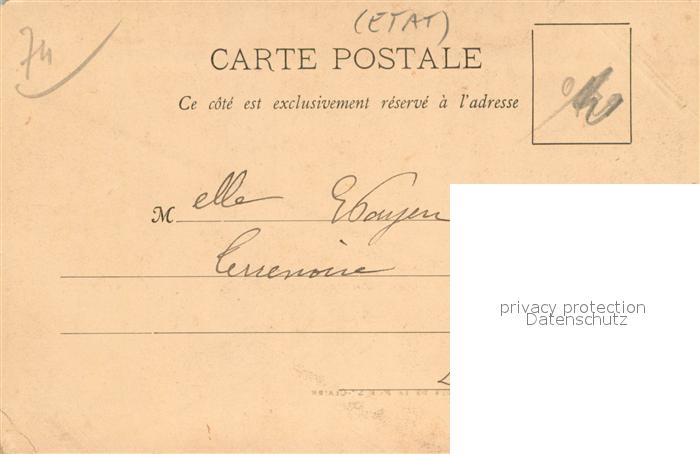 74
(ETAT)
CARTE POSTALE
Ce côté est exclusivement réservé à l'adresse
Melle
Terrenoire
privacy protection
Datenschutz